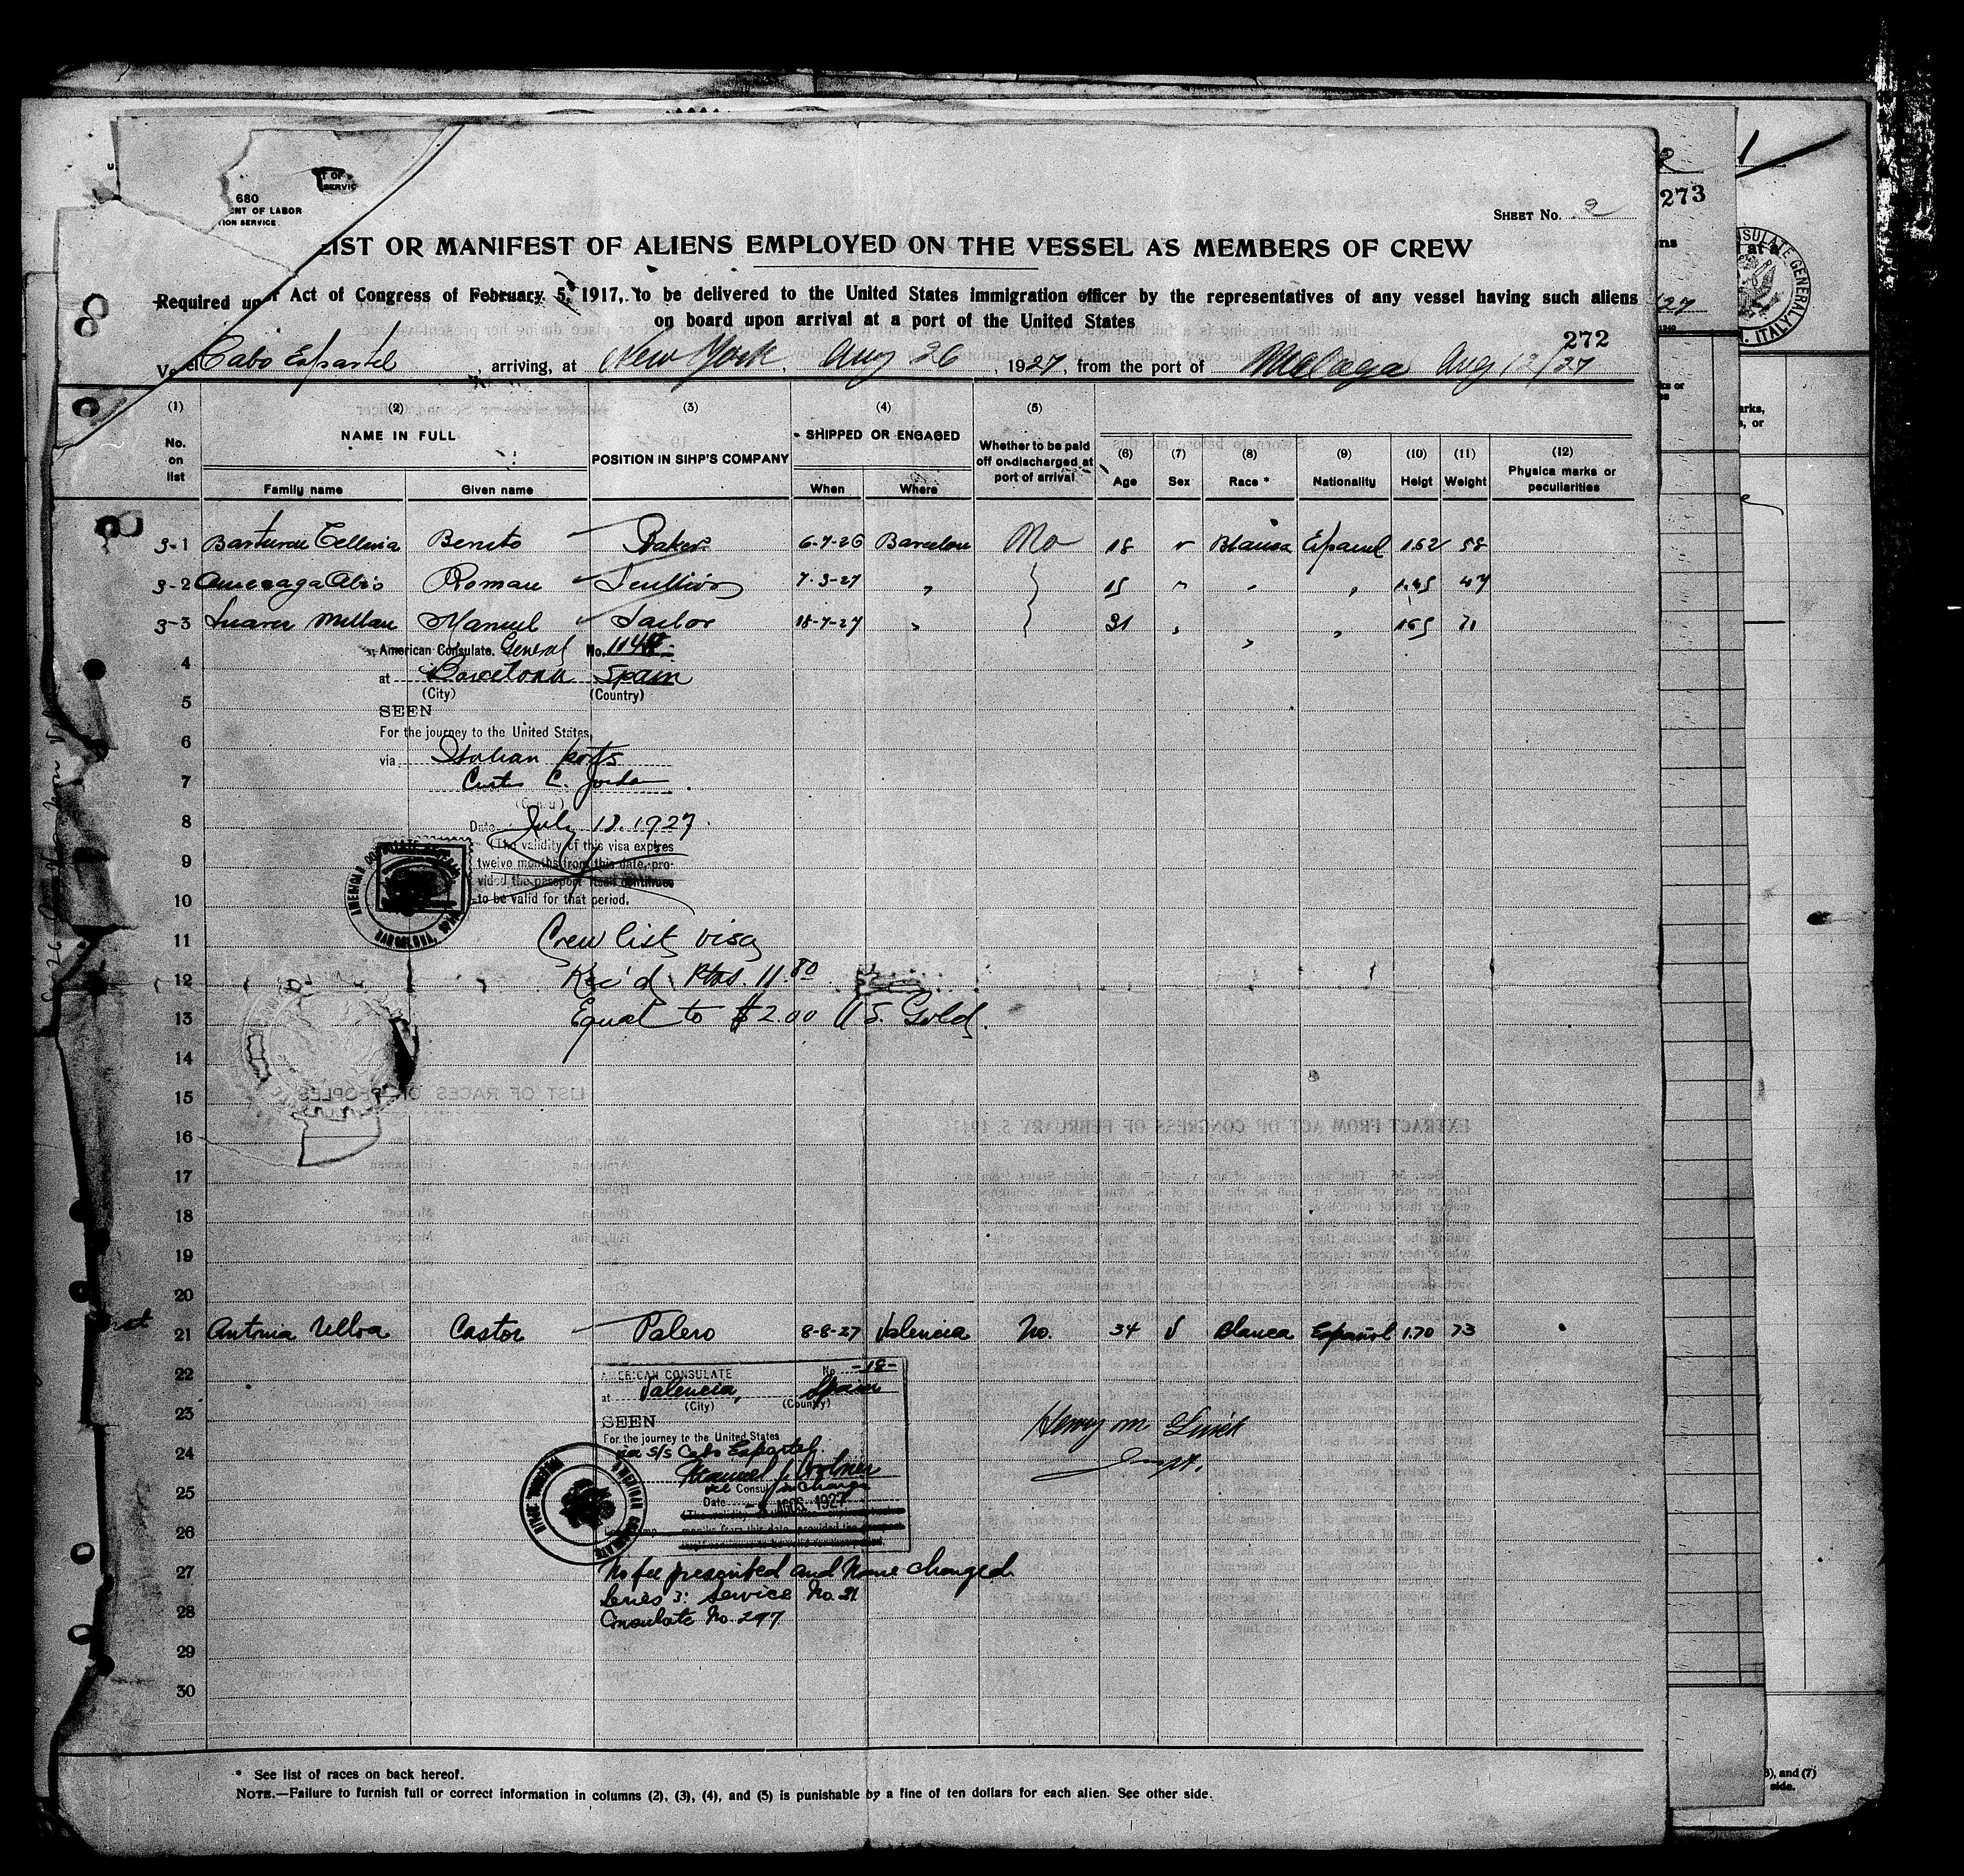 680
ENT OF LABOR
ION SERVICE
SHEET No. 2
LIST OR MANIFEST OF ALIENS EMPLOYED ON THE VESSEL AS MEMBERS OF CREW
Required under Act of Congress of February 5, 1917, to be delivered to the United States immigration officer by the representatives of any vessel having such aliens
on board upon arrival at a port of the United States
272
Vessel Cabo Espartel, arriving, at New York, Aug 26, 1927, from the port of Malaga Aug 12/27
(1) (2) (3) (4) (5) (6) (7) (8) (9) (10) (11) (12)
No. on list
NAME IN FULL
Family name Given name
POSITION IN SIHP'S COMPANY
SHIPPED OR ENGAGED
When Where
Whether to be paid off or discharged at port of arrival
Age Sex Race * Nationality Heigt Weight Physica marks or peculiarities
3-1 Benito Baker 6-7-26 Barcelona No 18 Blanca Español 1.62 58
3-2 Roman 7-3-27 " 15 47
3-3 Suarez Millan Manuel Sailor 18-7-27 " 31 165 71
American Consulate General No.
4
at Barcelona Spain
(City) (Country)
5
SEEN
For the journey to the United States,
6
via Italian ports
7
Curtis C. Jordan
8
Date July 18. 1927
(The validity of this visa expires
9
twelve months from this date, pro-
vided the passport itself continues
10
to be valid for that period.
AMERICAN CONSULATE GENERAL
BARCELONA, SPAIN
11
Crew list visa
12
Rec'd Ptas. 11.80
13
Equal to $2.00 U.S. Gold.
14
15
16
17
18
19
20
21 Antonia Ulloa Castor Palero 8-8-27 Valencia No. 34 Blanca Español 1.70 73
22
AMERICAN CONSULATE No -18-
at Valencia, Spain
(City) (Country)
23
SEEN
For the journey to the United States
24
via s/s Cabo Espartel
Henry M
Inspt.
Consul in Charge
25
Date AGOS. 1927
AMERICAN CONSULATE
VALENCIA, SPAIN
26
27
No fee presented and Name changed
Series 3: Service No. 21
28
Consulate No. 297
29
30
* See list of races on back hereof.
NOTE.—Failure to furnish full or correct information in columns (2), (3), (4), and (5) is punishable by a fine of ten dollars for each alien. See other side.
273
ITALY
3), and (7)
side.